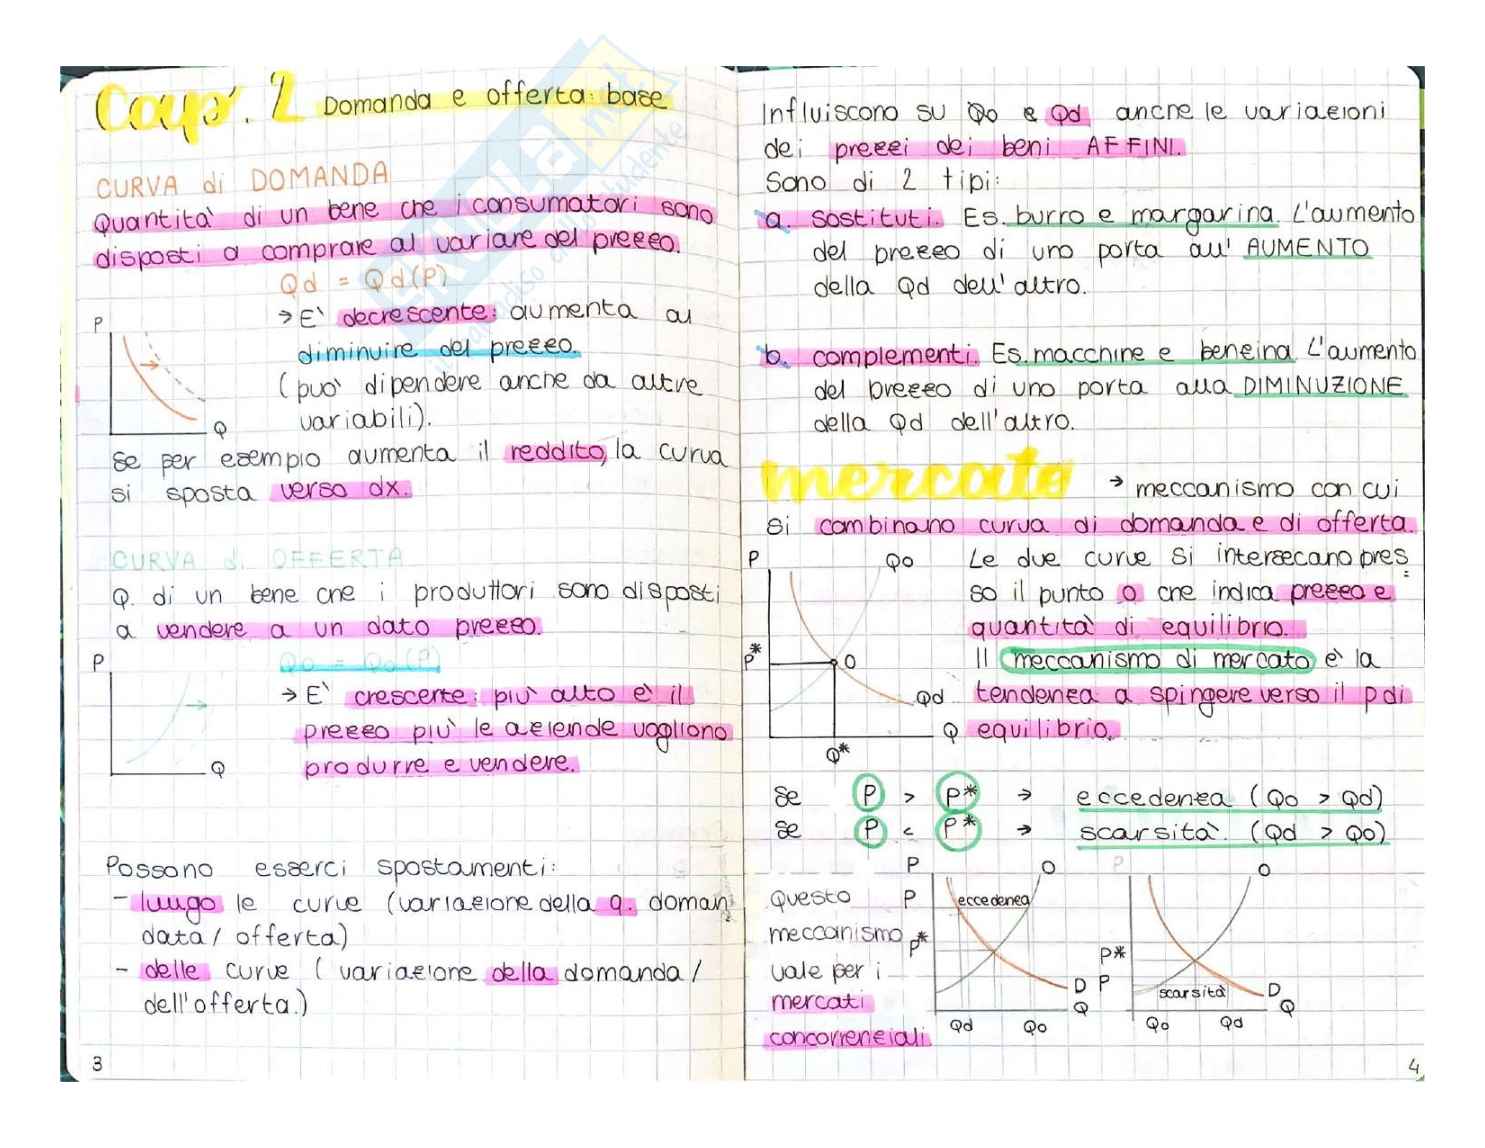 Cap. 2 Domanda e offerta: base
CURVA di DOMANDA
Quantità di un bene che i consumatori sono
disposti a comprare al variare del prezzo.
Qd = Qd(P)
→ E' decrescente: aumenta al
diminuire del prezzo.
(può dipendere anche da altre
variabili).
P
Q
Se per esempio aumenta il reddito, la curva
si sposta verso dx.
CURVA di OFFERTA
Q. di un bene che i produttori sono disposti
a vendere a un dato prezzo.
Qo = Qo(P)
→ E' crescente: più alto è il
prezzo più le aziende vogliono
produrre e vendere.
P
Q
Possono esserci spostamenti:
- lungo le curve (variazione della q. doman
data / offerta)
- delle curve ( variazione della domanda /
dell'offerta.)
3
Influiscono su Qo e Qd anche le variazioni
dei prezzi dei beni AFFINI.
Sono di 2 tipi:
a. sostituti. Es. burro e margarina. L'aumento
del prezzo di uno porta all' AUMENTO
della Qd dell'altro.
b. complementi. Es. macchine e benzina. L'aumento
del prezzo di uno porta alla DIMINUZIONE
della Qd dell'altro.
mercato → meccanismo con cui
si combinano curva di domanda e di offerta.
Le due curve si intersecano pres
so il punto o che indica prezzo e
quantità di equilibrio.
Il meccanismo di mercato è la
tendenza a spingere verso il p di
equilibrio.
P
Qo
P*
O
Qd
Q
Q*
Se P > P* → eccedenza (Qo > Qd)
se P < P* → scarsità. (Qd > Qo)
Questo
meccanismo
vale per i
mercati
concorrenziali.
P
O
P
eccedenza
P*
D
Q
Qd Qo
P
O
P*
P
scarsità
D
Q
Qo Qd
4
SKUOLA.net